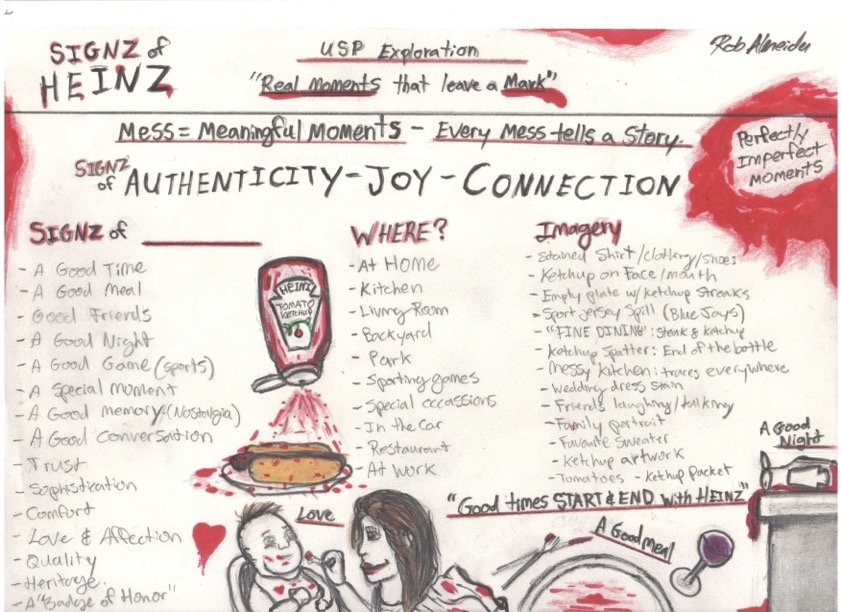 SIGNZ of
HEINZ
USP Exploration
"Real Moments that leave a Mark"
Rob Almeida
Mess = Meaningful Moments - Every Mess tells a Story.
Perfectly
Imperfect
Moments
SIGNZ of AUTHENTICITY - JOY - CONNECTION
SIGNZ of
- A Good Time
- A Good Meal
- Good Friends
- A Good Night
- A Good Game (sports)
- A Special Moment
- A Good memory (Nostalgia)
- A Good Conversation
- Trust
- Sophistication
- Comfort
- Love & Affection
- Quality
- Heritage
- A "Badge of Honor"
HEINZ
TOMATO
KETCHUP
WHERE?
- At Home
- Kitchen
- Living Room
- Backyard
- Park
- Sporting games
- Special occassions
- In the Car
- Restaurant
- At Work
Imagery
- Stained Shirt/clothing/shoes
- Ketchup on Face/mouth
- Empty plate w/ ketchup streaks
- Sport Jersey Spill (Blue Jays)
- "FINE DINING": Steak & ketchup
- Ketchup Spatter: End of the bottle
- Messy Kitchen: traces everywhere
- Wedding dress stain
- Friends laughing/talking
- Family portrait
- Favourite Sweater
- Ketchup artwork
- Tomatoes - Ketchup Packet
"Good times START & END with HEINZ"
A Good
Night
Love
A Good meal